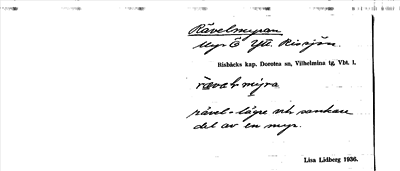 Rävelmyran
Myr Ö Ytt. Rissjön.
Risbäcks kap. Dorotea sn, Vilhelmina tg. Vbt. l.
rävel = lägre och sankare
del av en myr.
Lisa Lidberg 1936.